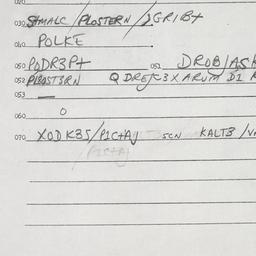 030 SHMALC / PLOSTERN / 2GRIB+
040 POLKE
050 PODR3P+ 051 DROB/ASK
052 PLEOST3RN QDREJC3XARUM D1
053 —
060 O
070 XODK35/P1C+AJ SCN KALT3/V
P1C+AJ